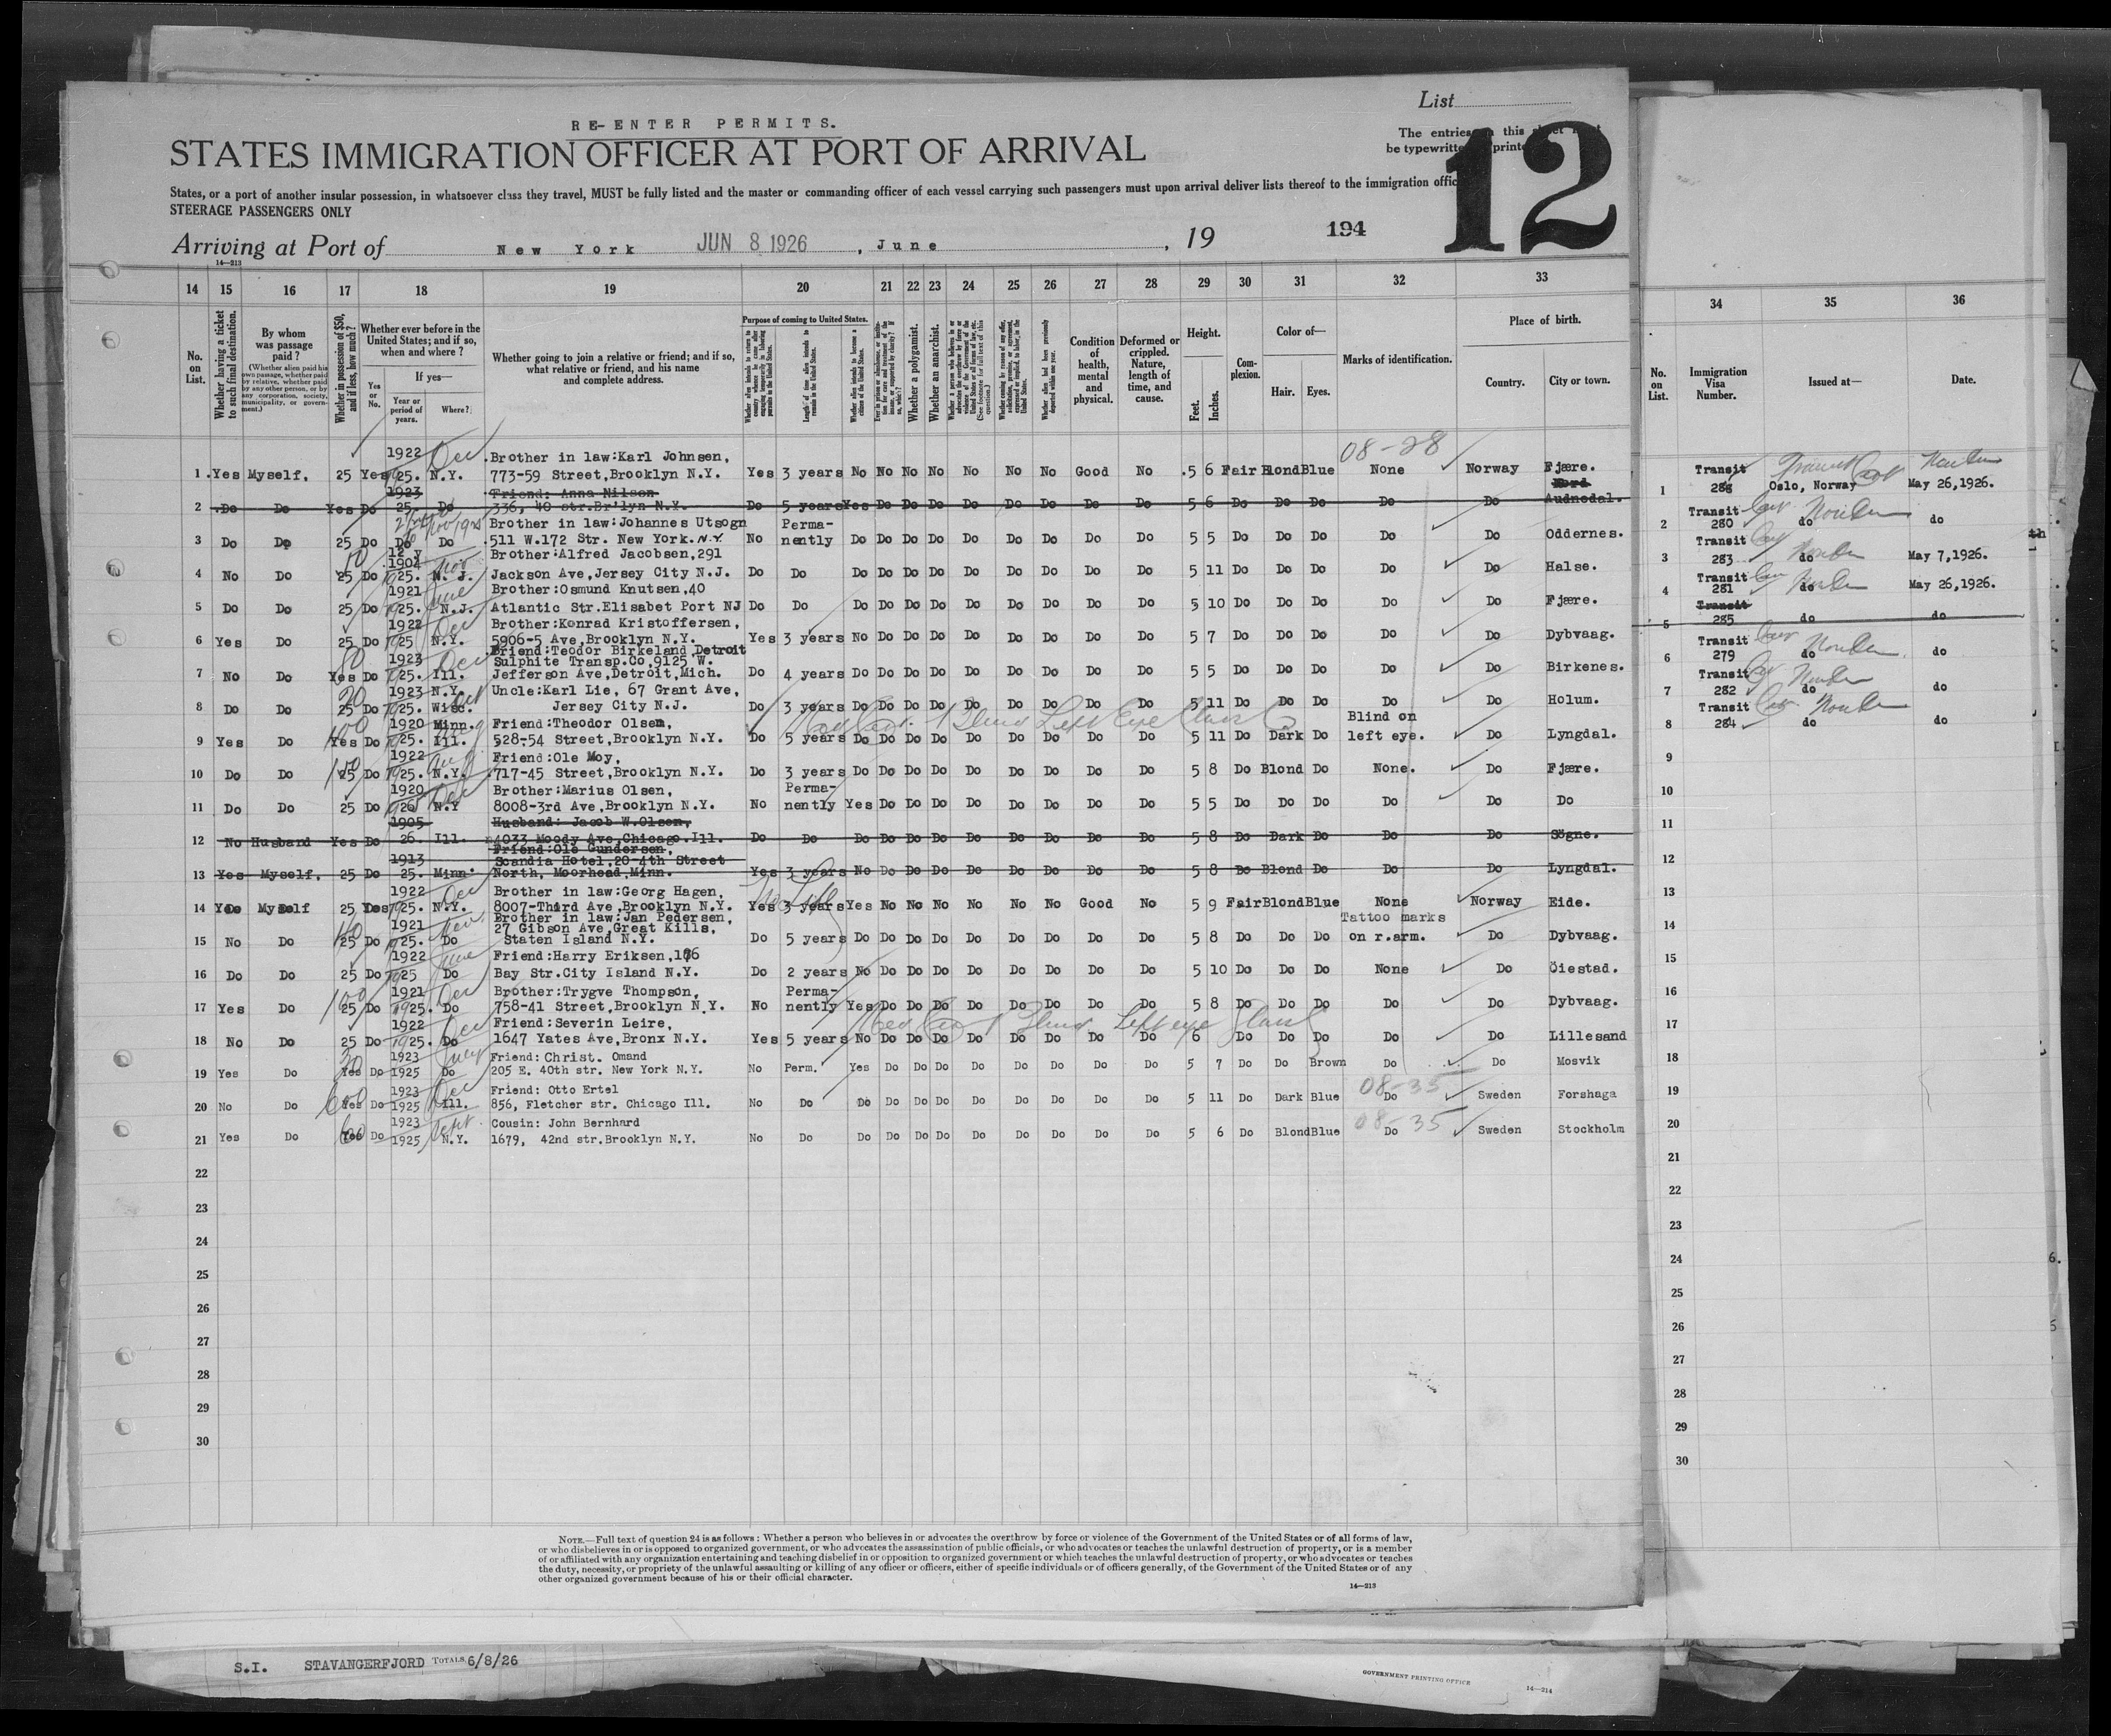 List
RE-ENTER PERMITS.
The entries on this sheet must
be typewritten or printed
STATES IMMIGRATION OFFICER AT PORT OF ARRIVAL
12
States, or a port of another insular possession, in whatsoever class they travel, MUST be fully listed and the master or commanding officer of each vessel carrying such passengers must upon arrival deliver lists thereof to the immigration offic
STEERAGE PASSENGERS ONLY
Arriving at Port of New York JUN 8 1926, June, 19 194
14—213
14 15 16 17 18 19 20 21 22 23 24 25 26 27 28 29 30 31 32 33
No. on List.
Whether having a ticket to such final destination.
By whom was passage paid?
(Whether alien paid his own passage, whether paid by relative, whether paid by any other person, or by any corporation, society, municipality, or government.)
Whether in possession of $50, and if less, how much?
Whether ever before in the United States; and if so, when and where?
If yes—
Yes or No.
Year or period of years.
Where?
Whether going to join a relative or friend; and if so, what relative or friend, and his name and complete address.
Purpose of coming to United States.
Length of time alien intends to remain in the United States.
Whether alien intends to become a citizen of the United States.
Whether a polygamist.
Whether an anarchist.
Condition of health, mental and physical.
Deformed or crippled. Nature, length of time, and cause.
Height.
Feet. Inches.
Complexion.
Color of—
Hair. Eyes.
Marks of identification.
Place of birth.
Country. City or town.
08-28
1922 Dec Brother in law:Karl Johnsen,
1 Yes Myself. 25 Yes 25. N.Y. 773-59 Street,Brooklyn N.Y. Yes 3 years No No No No No No No Good No 5 6 Fair Blond Blue None Norway Fjære.
1923 Friend: Anna Nilson Nord
2 Do Do Yes Do 25. Do 336, 40 str.Br'lyn N.Y. Do 5 years Yes Do Do Do Do Do Do Do Do 5 6 Do Do Do Do Do Audnedal.
Brother in law:Johannes Utsogn Perma-
3 Do Do 25 Do Do Do 511 W.172 Str. New York.N.Y. No nently Do Do Do Do Do Do Do Do Do 5 5 Do Do Do Do Do Oddernes.
12 y 1904 Nov Brother:Alfred Jacobsen,291
4 No Do 25 Do 25. N. J. Jackson Ave,Jersey City N.J. Do Do Do Do Do Do Do Do Do Do Do 5 11 Do Do Do Do Do Halse.
1921 June Brother:Osmund Knutsen,40
5 Do Do 25 Do 25. N.J. Atlantic Str.Elisabet Port NJ Do Do Do Do Do Do Do Do Do Do Do 5 10 Do Do Do Do Do Fjære.
1922 Dec Brother:Konrad Kristoffersen,
6 Yes Do 25 Do 25 N.Y. 5906-5 Ave,Brooklyn N.Y. Yes 3 years No Do Do Do Do Do Do Do Do 5 7 Do Do Do Do Do Dybvaag.
Friend:Teodor Birkeland,Detroit
1923 Dec Sulphite Transp.Co,9125 W.
7 No Do Yes Do 25. Ill. Jefferson Ave,Detroit,Mich. Do 4 years Do Do Do Do Do Do Do Do Do 5 5 Do Do Do Do Do Birkenes.
1923 N.Y. Uncle:Karl Lie, 67 Grant Ave,
8 Do Do 25 Do 25. Wisc. Jersey City N.J. Do 3 years Do Do Do Do Do Do Do Do Do 5 11 Do Do Do Do Do Holum.
1920 Minn. Friend:Theodor Olsen, Blind on
9 Yes Do Yes Do 25. Ill. 528-54 Street,Brooklyn N.Y. Do 5 years Do Do Do Do Do Do Do Do Do 5 11 Do Dark Do left eye. Do Lyngdal.
1922 Friend:Ole Moy,
10 Do Do 25 Do 25. N.Y. 717-45 Street,Brooklyn N.Y. Do 3 years Do Do Do Do Do Do Do Do Do 5 8 Do Blond Do None. Do Fjære.
1920 Brother:Marius Olsen, Perma-
11 Do Do 25 Do 26 N.Y 8008-3rd Ave,Brooklyn N.Y. No nently Yes Do Do Do Do Do Do Do Do 5 5 Do Do Do Do Do Do
1905 Husband: Jacob W.Olsen,
12 No Husband Yes Do 26. Ill. 4033 Moody Ave,Chicago.Ill. Do Do Do Do Do Do Do Do Do Do Do 5 8 Do Dark Do Do Do Sögne.
Friend:Ole Gundersen,
1913 Scandia Hotel,20-4th Street
13 Yes Myself, 25 Do 25. Minn. North, Moorhead,Minn. Yes 3 years No Do Do Do Do Do Do Do Do 5 8 Do Blond Do Do Do Lyngdal.
1922 Dec Brother in law:Georg Hagen,
14 Yes Myself 25 Yes 25. N.Y. 8007-Third Ave,Brooklyn N.Y. Yes 3 years Yes No No No No No No Good No 5 9 Fair Blond Blue None Norway Eide.
1921 Brother in law:Jan Pedersen, Tattoo marks
27 Gibson Ave,Great Kills,
15 No Do 25 Do 25. Do Staten Island N.Y. Do 5 years Do Do Do Do Do Do Do Do Do 5 8 Do Do Do on r.arm. Do Dybvaag.
1922 June Friend:Harry Eriksen,186
16 Do Do 25 Do 25 Do Bay Str.City Island N.Y. Do 2 years No Do Do Do Do Do Do Do Do 5 10 Do Do Do None Do Öiestad.
1921 Dec Brother:Trygve Thompson, Perma-
17 Yes Do 25 Do 25. Do 758-41 Street,Brooklyn N.Y. No nently Yes Do Do Do Do Do Do Do Do 5 8 Do Do Do Do Do Dybvaag.
1922 Dec Friend:Severin Leire,
18 No Do 25 Do 25. Do 1647 Yates Ave,Bronx N.Y. Yes 5 years No Do Do Do Do Do Do Do Do 6 Do Do Do Do Do Lillesand
1923 Friend: Christ. Omand
19 Yes Do Yes Do 1925 Do 205 E. 40th str. New York N.Y. No Perm. Yes Do Do Do Do Do Do Do Do 5 7 Do Do Brown Do Do Mosvik
1923 Dec Friend: Otto Ertel 08-35
20 No Do Yes Do 1925 Ill. 856, Fletcher str. Chicago Ill. No Do Do Do Do Do Do Do Do Do Do 5 11 Do Dark Blue Do Sweden Forshaga
1923 Sept Cousin: John Bernhard 08-35
21 Yes Do Yes Do 1925 N.Y. 1679, 42nd str.Brooklyn N.Y. No Do Do Do Do Do Do Do Do Do Do 5 6 Do Blond Blue Do Sweden Stockholm
22
23
24
25
26
27
28
29
30
NOTE.—Full text of question 24 is as follows: Whether a person who believes in or advocates the overthrow by force or violence of the Government of the United States or of all forms of law,
or who disbelieves in or is opposed to organized government, or who advocates the assassination of public officials, or who advocates or teaches the unlawful destruction of property, or is a member
of or affiliated with any organization entertaining and teaching disbelief in or opposition to organized government or which teaches the unlawful destruction of property, or who advocates or teaches
the duty, necessity, or propriety of the unlawful assaulting or killing of any officer or officers, either of specific individuals or of officers generally, of the Government of the United States or of any
other organized government because of his or their official character.
14—213
34 35 36
No. on List.
Immigration Visa Number.
Issued at—
Date.
Transit
1 Oslo, Norway May 26,1926.
Transit
2 280 do do
Transit
3 283 do May 7,1926.
Transit
4 281 do May 26,1926.
Transit
5 285 do do
Transit
6 279 do do
Transit
7 282 do do
Transit
8 284 do do
9
10
11
12
13
14
15
16
17
18
19
20
21
22
23
24
25
26
27
28
29
30
S.I. STAVANGERFJORD TOTALS 6/8/26
GOVERNMENT PRINTING OFFICE
14—214